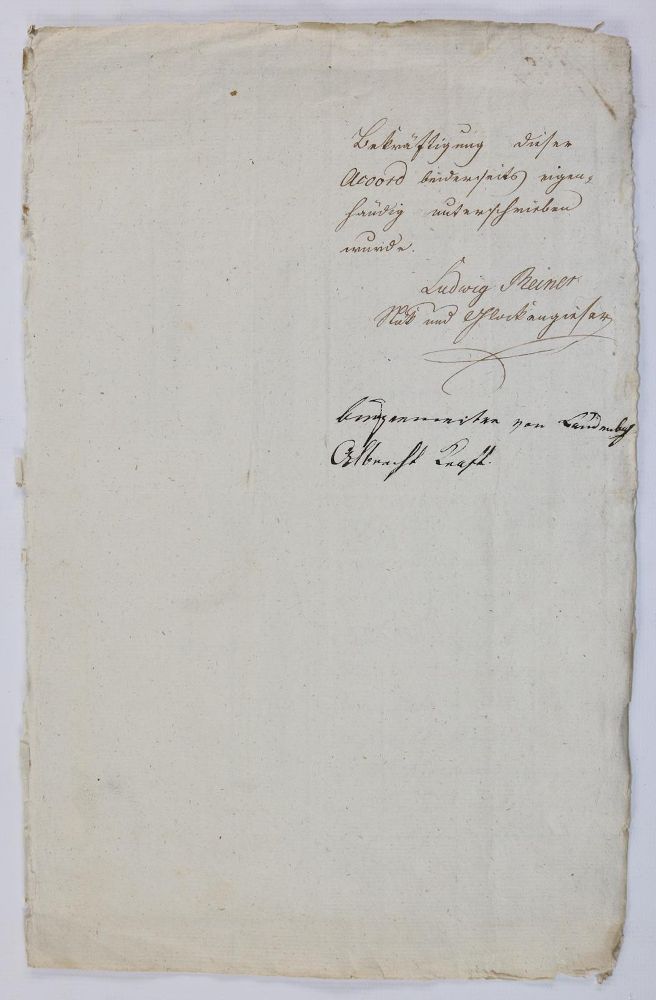 Bekräftigung dieser
Accord beiderseits eigen¬
händig unterschrieben
wurde.
Ludwig Reiner
Stük und Glockengieser
burgermeister von Laudenbach
Albrecht Kraft.